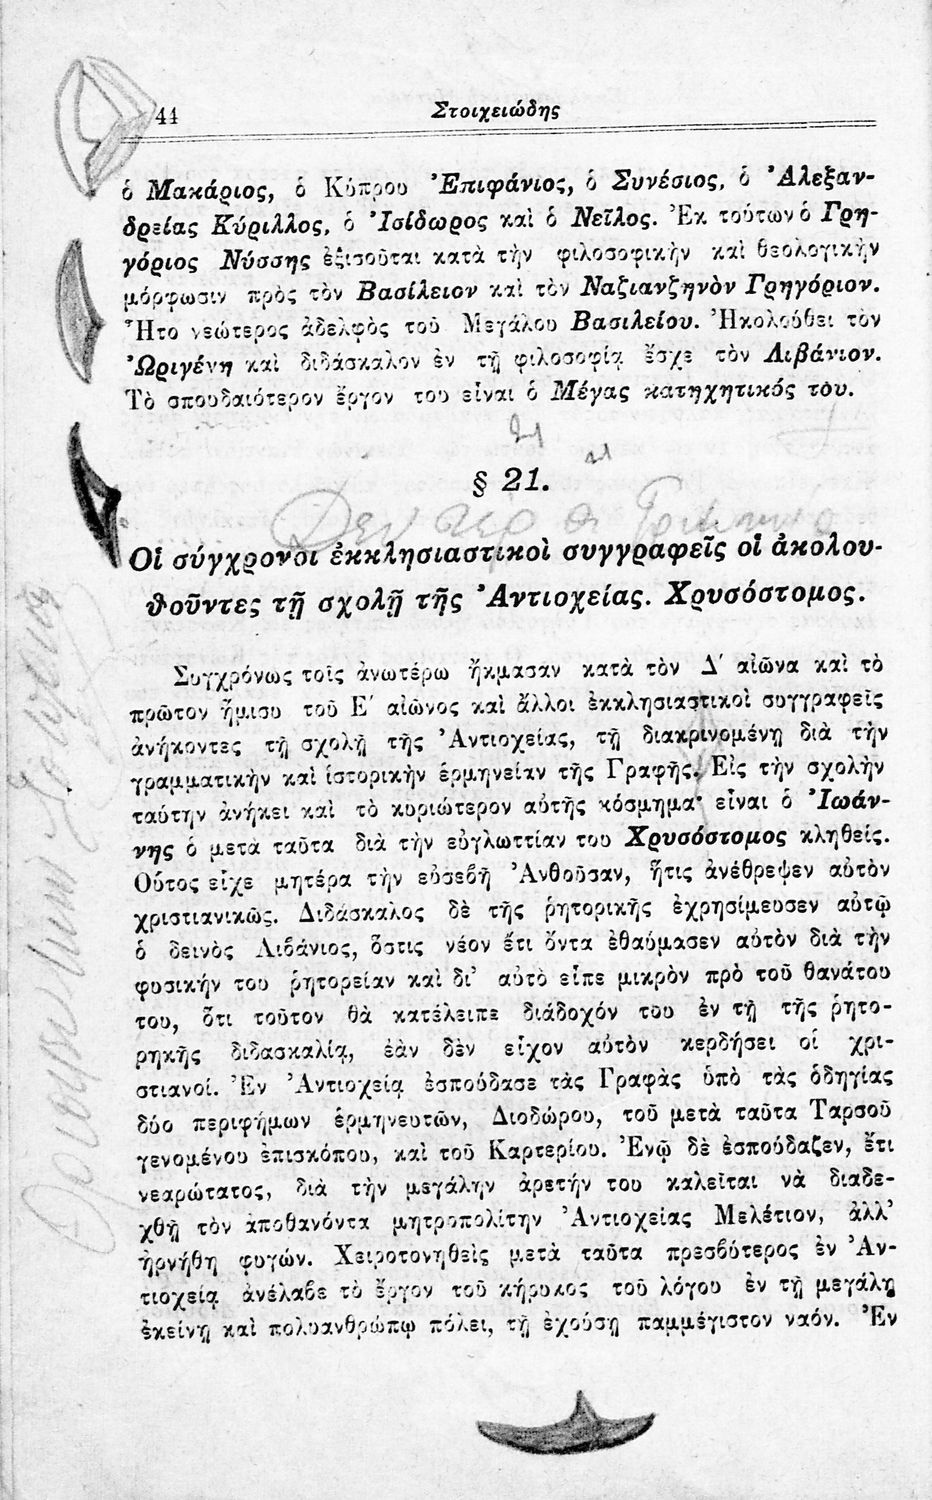 44
Στοιχειώδης
ὁ Μακάριος, ὁ Κύπρου Ἐπιφάνιος, ὁ Συνέσιος, ὁ Ἀλεξαν-
δρείας Κύριλλος, ὁ Ἰσίδωρος καὶ ὁ Νεῖλος. Ἐκ τούτων ὁ Γρη-
γόριος Νύσσης ἐξισοῦται κατὰ τὴν φιλοσοφικὴν καὶ θεολογικὴν
μόρφωσιν πρὸς τὸν Βασίλειον καὶ τὸν Ναζιανζηνὸν Γρηγόριον.
Ἦτο νεώτερος ἀδελφὸς τοῦ Μεγάλου Βασιλείου. Ἠκολούθει τὸν
Ὠριγένη καὶ διδάσκαλον ἐν τῇ φιλοσοφίᾳ ἔσχε τὸν Λιβάνιον.
Τὸ σπουδαιότερον ἔργον του εἶναι ὁ Μέγας κατηχητικός του.
21
§ 21.
Οἱ σύγχρονοι ἐκκλησιαστικοὶ συγγραφεῖς οἱ ἀκολου-
θοῦντες τῇ σχολῇ τῆς Ἀντιοχείας. Χρυσόστομος.
Συγχρόνως τοῖς ἀνωτέρω ἤκμασαν κατὰ τὸν Δ΄ αἰῶνα καὶ τὸ
πρῶτον ἥμισυ τοῦ Ε΄ αἰῶνος καὶ ἄλλοι ἐκκλησιαστικοὶ συγγραφεῖς
ἀνήκοντες τῇ σχολῇ τῆς Ἀντιοχείας, τῇ διακρινομένῃ διὰ τὴν
γραμματικὴν καὶ ἱστορικὴν ἑρμηνείαν τῆς Γραφῆς. Εἰς τὴν σχολὴν
ταύτην ἀνήκει καὶ τὸ κυριώτερον αὐτῆς κόσμημα· εἶναι ὁ Ἰωάν-
νης ὁ μετὰ ταῦτα διὰ τὴν εὐγλωττίαν του Χρυσόστομος κληθείς.
Οὗτος εἶχε μητέρα τὴν εὐσεβῆ Ἀνθοῦσαν, ἥτις ἀνέθρεψεν αὐτὸν
χριστιανικῶς. Διδάσκαλος δὲ τῆς ῥητορικῆς ἐχρησίμευσεν αὐτῷ
ὁ δεινὸς Λιβάνιος, ὅστις νέον ἔτι ὄντα ἐθαύμασεν αὐτὸν διὰ τὴν
φυσικήν του ῥητορείαν καὶ δι᾿ αὐτὸ εἶπε μικρὸν πρὸ τοῦ θανάτου
του, ὅτι τοῦτον θὰ κατέλειπε διάδοχόν του ἐν τῇ τῆς ῥητο-
ρηκῆς διδασκαλίᾳ, ἐὰν δὲν εἶχον αὐτὸν κερδήσει οἱ χρι-
στιανοί. Ἐν Ἀντιοχείᾳ ἐσπούδασε τὰς Γραφὰς ὑπὸ τὰς ὁδηγίας
δύο περιφήμων ἑρμηνευτῶν, Διοδώρου, τοῦ μετὰ ταῦτα Ταρσοῦ
γενομένου ἐπισκόπου, καὶ τοῦ Καρτερίου. Ἐνῷ δὲ ἐσπούδαζεν, ἔτι
νεαρώτατος, διὰ τὴν μεγάλην ἀρετήν του καλεῖται νὰ διαδε-
χθῇ τὸν ἀποθανόντα μητροπολίτην Ἀντιοχείας Μελέτιον, ἀλλ᾿
ἠρνήθη φυγών. Χειροτονηθεὶς μετὰ ταῦτα πρεσβύτερος ἐν Ἀν-
τιοχείᾳ ἀνέλαβε τὸ ἔργον τοῦ κήρυκος τοῦ λόγου ἐν τῇ μεγάλῃ
ἐκείνῃ καὶ πολυανθρώπῳ πόλει, τῇ ἐχούσῃ παμμέγιστον ναόν. Ἐν